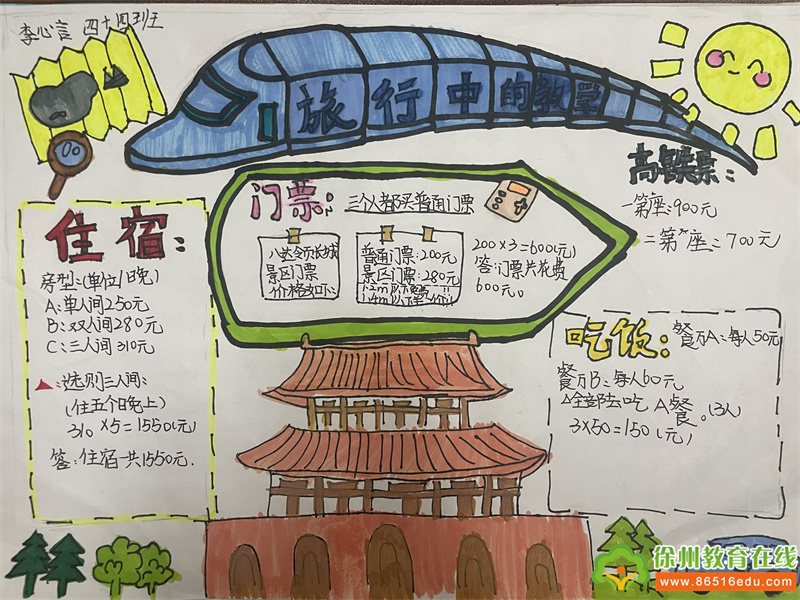 李心言 四十四班
旅行中的数学
高铁票:
一等座:900元
二等座:700元
门票:
三个人都买普通门票
八达令长城
景区门票
价格如下:
普通门票:200元
景区门票:280元
200×3=600(元)
答:门票共花费
600元。
住宿:
房型:(单位/晚)
A:单人间250元
B:双人间280元
C:三人间310元
选则三人间:
(住五个晚上)
310×5=1550(元)
答:住宿一共1550元.
吃饭:
餐厅A:每人50元
餐厅B:每人60元
全部去吃A餐。(3人
3×50=150(元)
徐州教育在线
www.86516edu.com